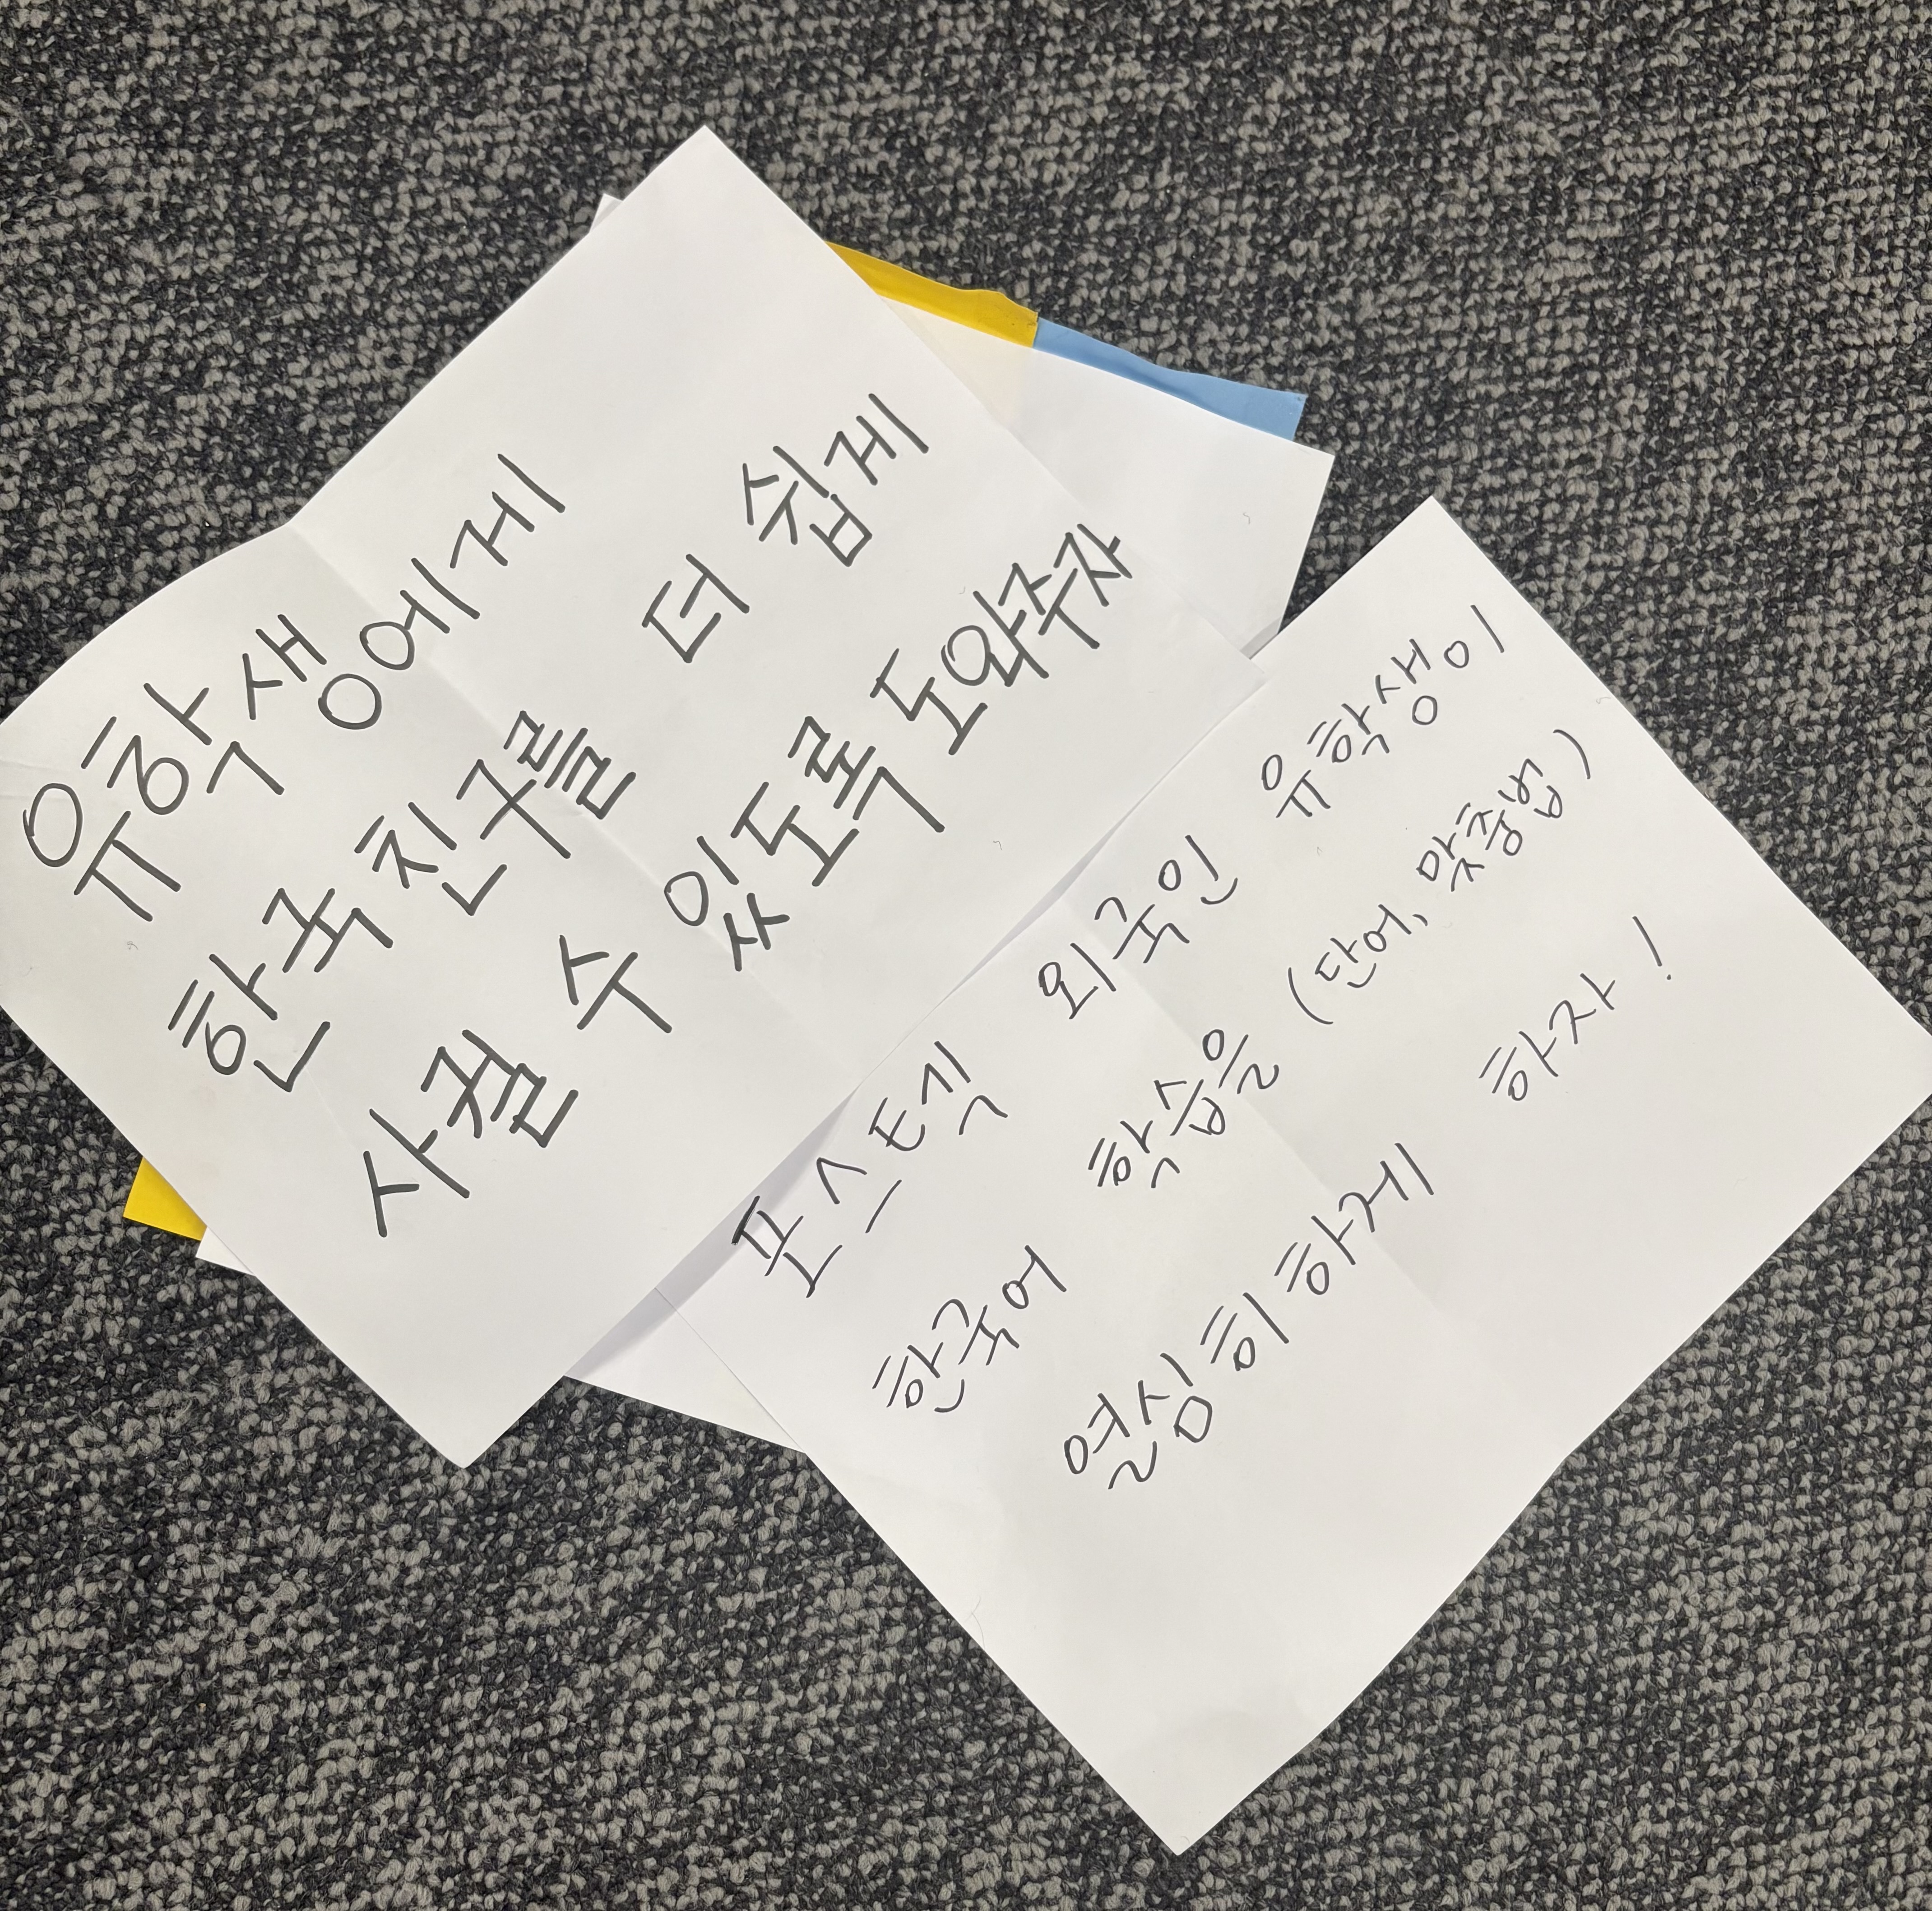 유학생에게
한국 친구를 더 쉽게
사귈 수 있도록 도와주자
포스텍 외국인 유학생이
한국어 학습을 (단어, 맞춤법)
열심히 하게 하자!